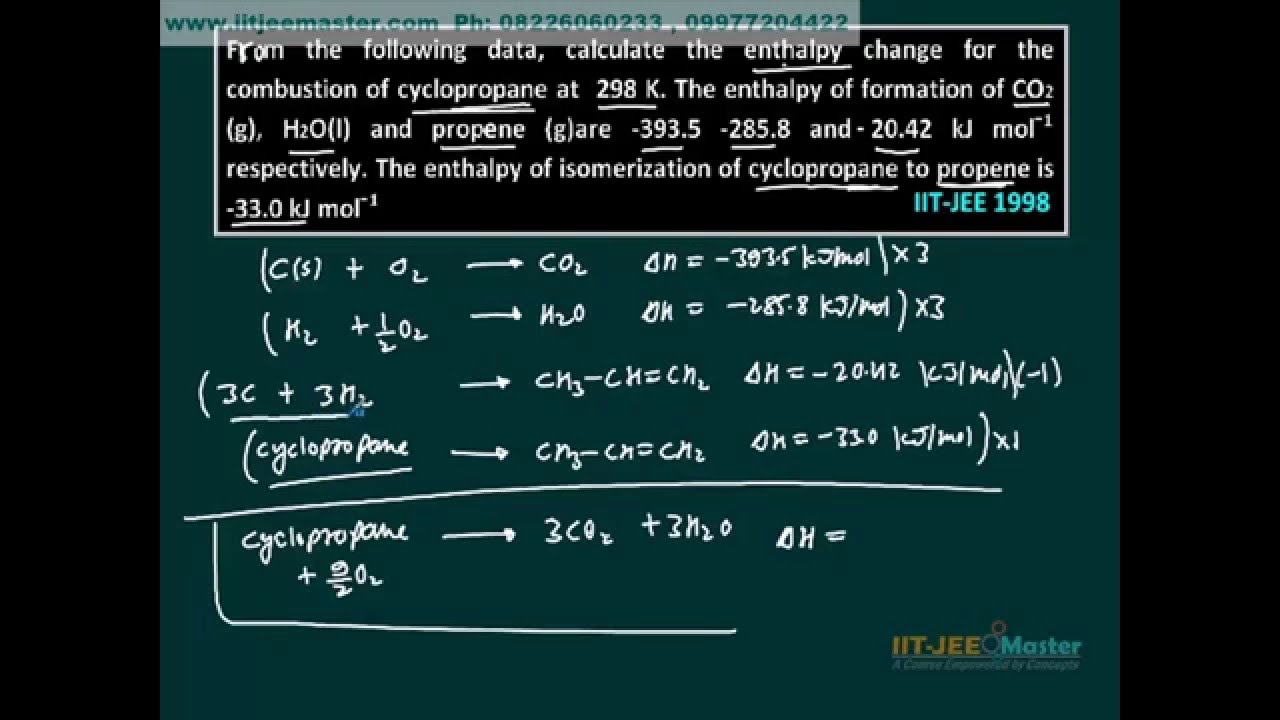 www.iitjeemaster.com Ph: 08226060233 , 09977204422
From the following data, calculate the enthalpy change for the
combustion of cyclopropane at 298 K. The enthalpy of formation of CO₂
(g), H₂O(l) and propene (g)are -393.5 -285.8 and - 20.42 kJ mol⁻¹
respectively. The enthalpy of isomerization of cyclopropane to propene is
-33.0 kJ mol⁻¹ IIT-JEE 1998
(C(s) + O₂ → CO₂ ΔH = -393.5 kJ/mol) ×3
(H₂ + 1/2 O₂ → H₂O ΔH = -285.8 kJ/mol) ×3
(3C + 3H₂ → CH₃-CH=CH₂ ΔH = -20.42 kJ/mol)(-1)
(cyclopropane → CH₃-CH=CH₂ ΔH = -33.0 kJ/mol) ×1
cyclopropane → 3CO₂ + 3H₂O ΔH =
+ 9/2 O₂
IIT-JEE Master
A Course Empowered by Concepts